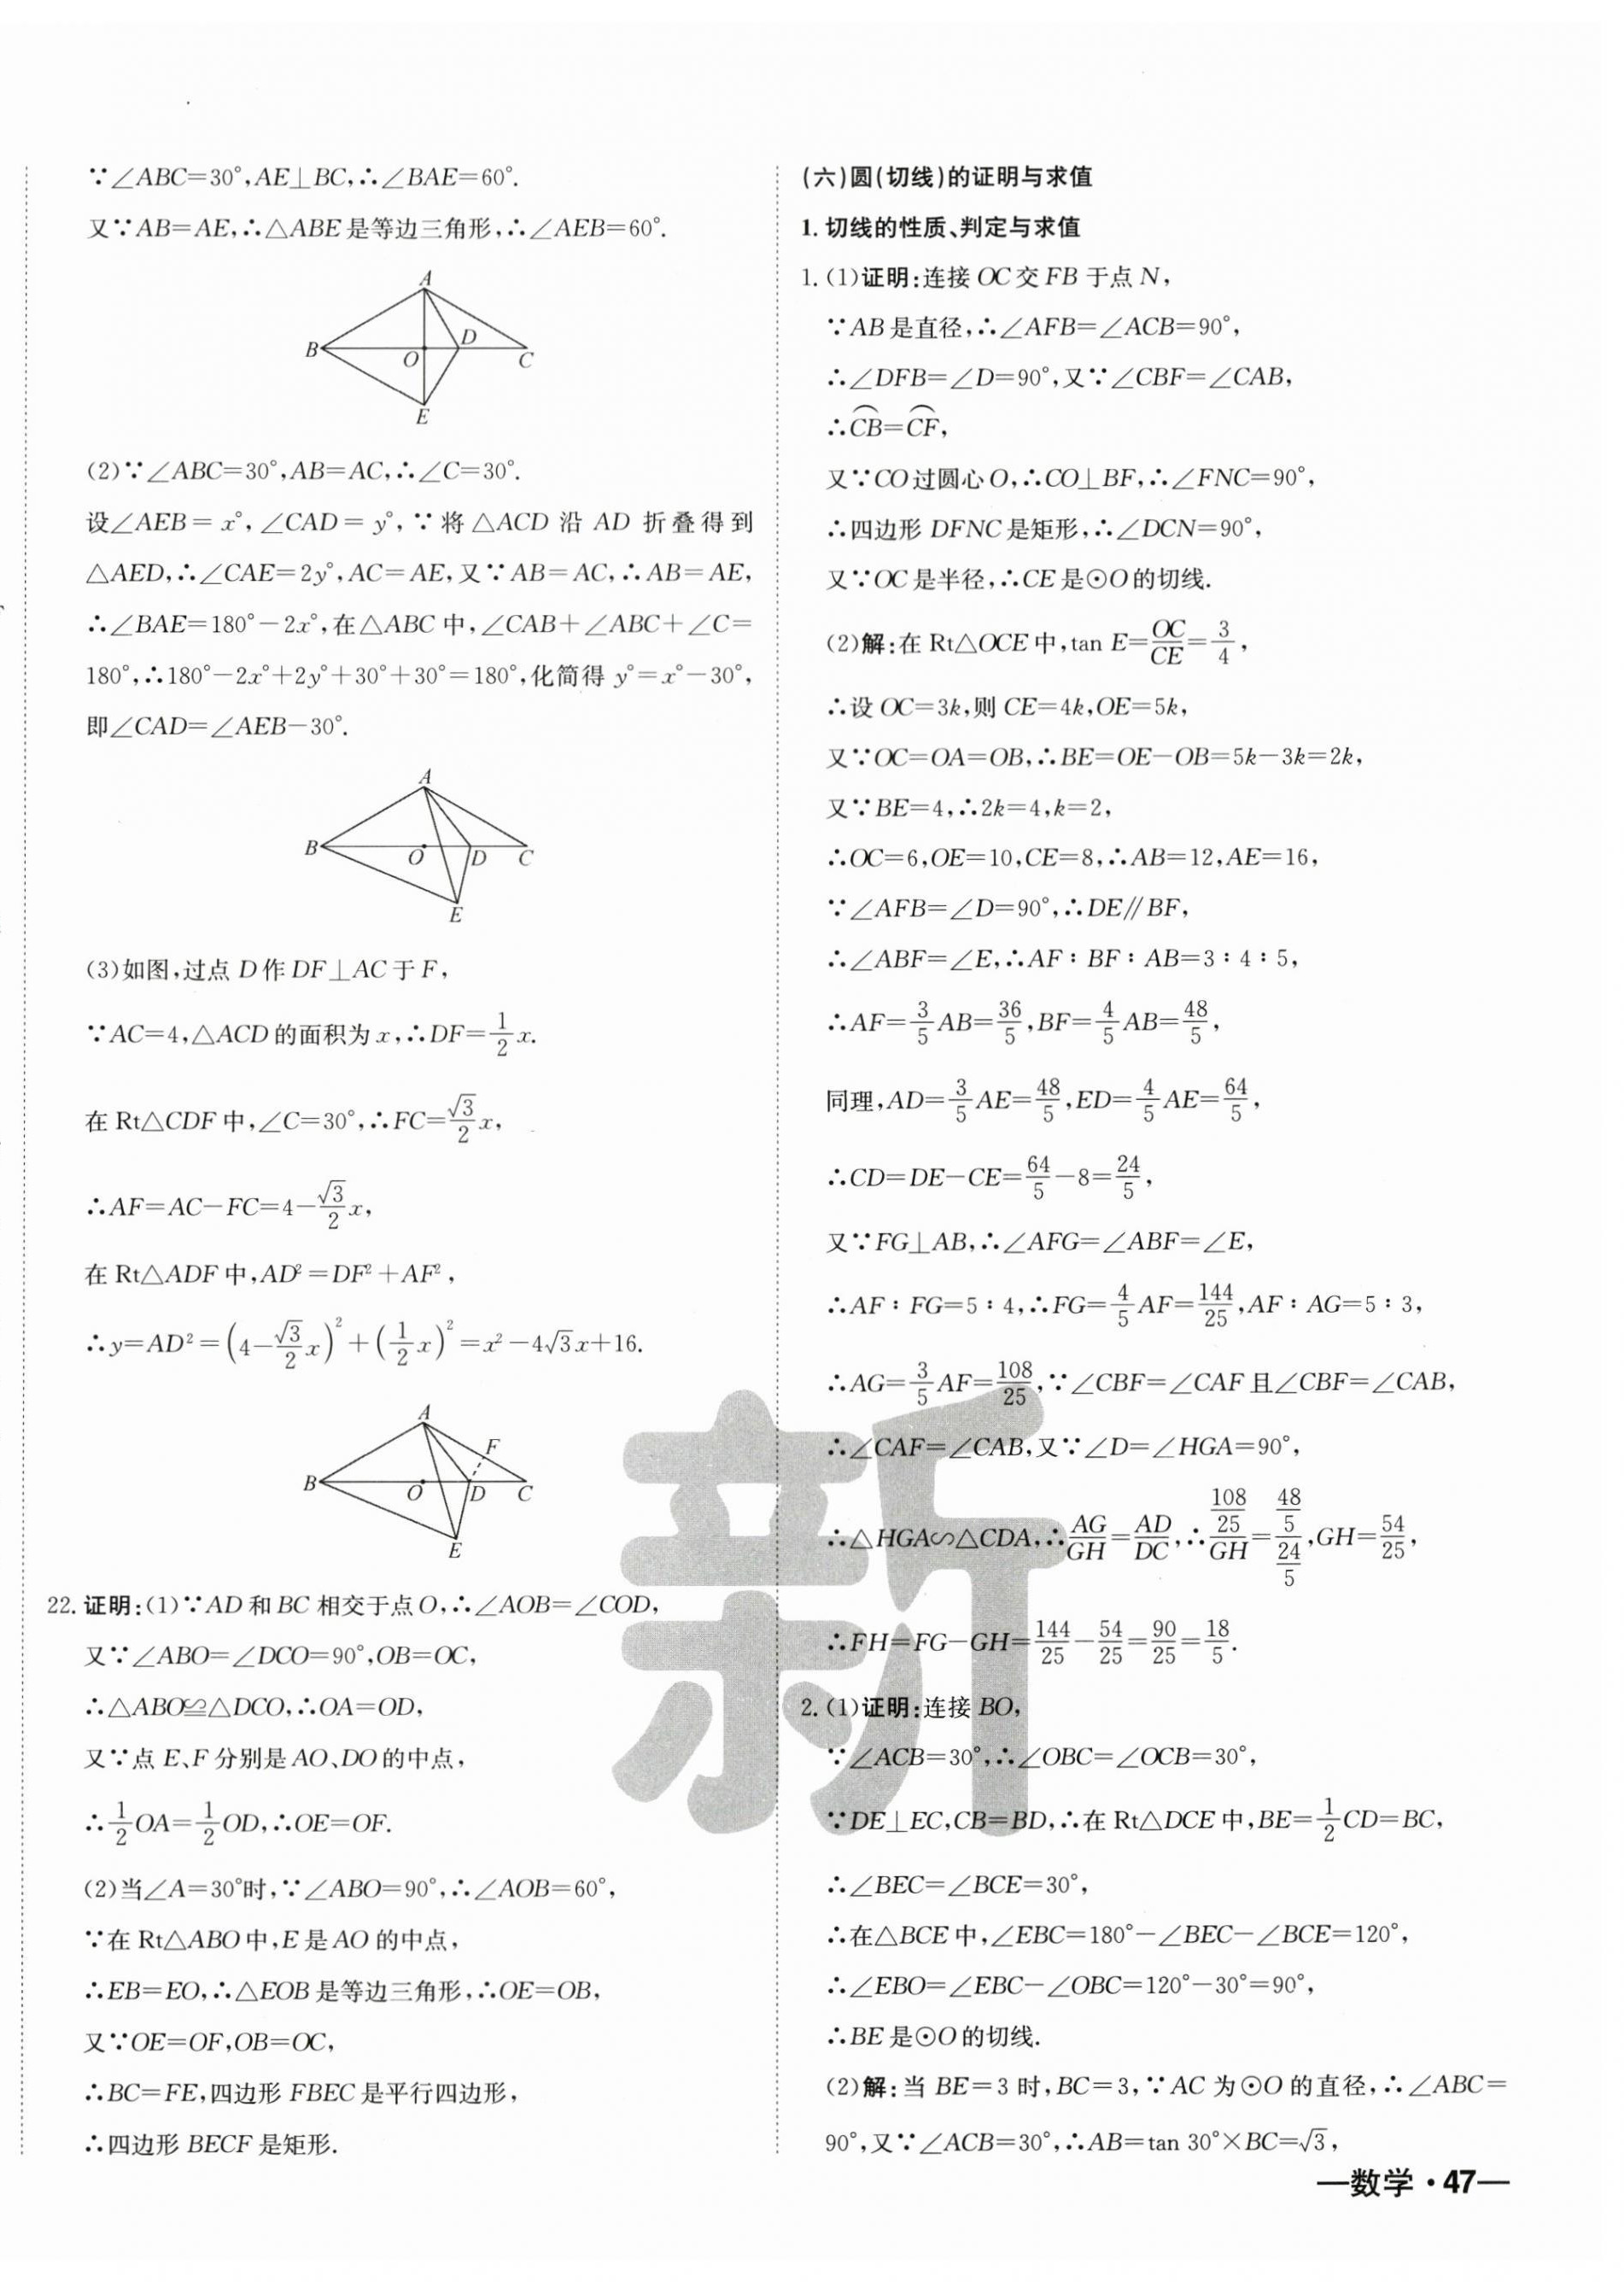 ∵∠ABC=30°,AE⊥BC,∴∠BAE=60°.
又∵AB=AE,∴△ABE是等边三角形,∴∠AEB=60°.
A
B
O
D
C
E
(2)∵∠ABC=30°,AB=AC,∴∠C=30°.
设∠AEB=x°,∠CAD=y°,∵将△ACD沿AD折叠得到
△AED,∴∠CAE=2y°,AC=AE,又∵AB=AC,∴AB=AE,
∴∠BAE=180°-2x°,在△ABC中,∠CAB+∠ABC+∠C=
180°,∴180°-2x°+2y°+30°+30°=180°,化简得y°=x°-30°,
即∠CAD=∠AEB-30°.
A
B
O
D
C
E
(3)如图,过点D作DF⊥AC于F,
∵AC=4,△ACD的面积为x,∴DF=1/2x.
在Rt△CDF中,∠C=30°,∴FC=√3/2x,
∴AF=AC-FC=4-√3/2x,
在Rt△ADF中,AD²=DF²+AF²,
∴y=AD²=(4-√3/2x)²+(1/2x)²=x²-4√3x+16.
A
F
B
O
D
C
E
22.证明:(1)∵AD和BC相交于点O,∴∠AOB=∠COD,
又∵∠ABO=∠DCO=90°,OB=OC,
∴△ABO≌△DCO,∴OA=OD,
又∵点E、F分别是AO、DO的中点,
∴1/2OA=1/2OD,∴OE=OF.
(2)当∠A=30°时,∵∠ABO=90°,∴∠AOB=60°,
∵在Rt△ABO中,E是AO的中点,
∴EB=EO,∴△EOB是等边三角形,∴OE=OB,
又∵OE=OF,OB=OC,
∴BC=FE,四边形FBEC是平行四边形,
∴四边形BECF是矩形.
(六)圆(切线)的证明与求值
1.切线的性质、判定与求值
1.(1)证明:连接OC交FB于点N,
∵AB是直径,∴∠AFB=∠ACB=90°,
∴∠DFB=∠D=90°,又∵∠CBF=∠CAB,
∴⌒CB=⌒CF,
又∵CO过圆心O,∴CO⊥BF,∴∠FNC=90°,
∴四边形DFNC是矩形,∴∠DCN=90°,
又∵OC是半径,∴CE是⊙O的切线.
(2)解:在Rt△OCE中,tan E=OC/CE=3/4,
∴设OC=3k,则CE=4k,OE=5k,
又∵OC=OA=OB,∴BE=OE-OB=5k-3k=2k,
又∵BE=4,∴2k=4,k=2,
∴OC=6,OE=10,CE=8,∴AB=12,AE=16,
∵∠AFB=∠D=90°,∴DE∥BF,
∴∠ABF=∠E,∴AF∶BF∶AB=3∶4∶5,
∴AF=3/5AB=36/5,BF=4/5AB=48/5,
同理,AD=3/5AE=48/5,ED=4/5AE=64/5,
∴CD=DE-CE=64/5-8=24/5,
又∵FG⊥AB,∴∠AFG=∠ABF=∠E,
∴AF∶FG=5∶4,∴FG=4/5AF=144/25,AF∶AG=5∶3,
∴AG=3/5AF=108/25,∵∠CBF=∠CAF且∠CBF=∠CAB,
∴∠CAF=∠CAB,又∵∠D=∠HGA=90°,
∴△HGA∽△CDA,∴AG/GH=AD/DC,∴(108/25)/GH=(48/5)/(24/5),GH=54/25,
∴FH=FG-GH=144/25-54/25=90/25=18/5.
2.(1)证明:连接BO,
∵∠ACB=30°,∴∠OBC=∠OCB=30°,
∵DE⊥EC,CB=BD,∴在Rt△DCE中,BE=1/2CD=BC,
∴∠BEC=∠BCE=30°,
∴在△BCE中,∠EBC=180°-∠BEC-∠BCE=120°,
∴∠EBO=∠EBC-∠OBC=120°-30°=90°,
∴BE是⊙O的切线.
(2)解:当BE=3时,BC=3,∵AC为⊙O的直径,∴∠ABC=
90°,又∵∠ACB=30°,∴AB=tan 30°×BC=√3,
新
—数学·47—